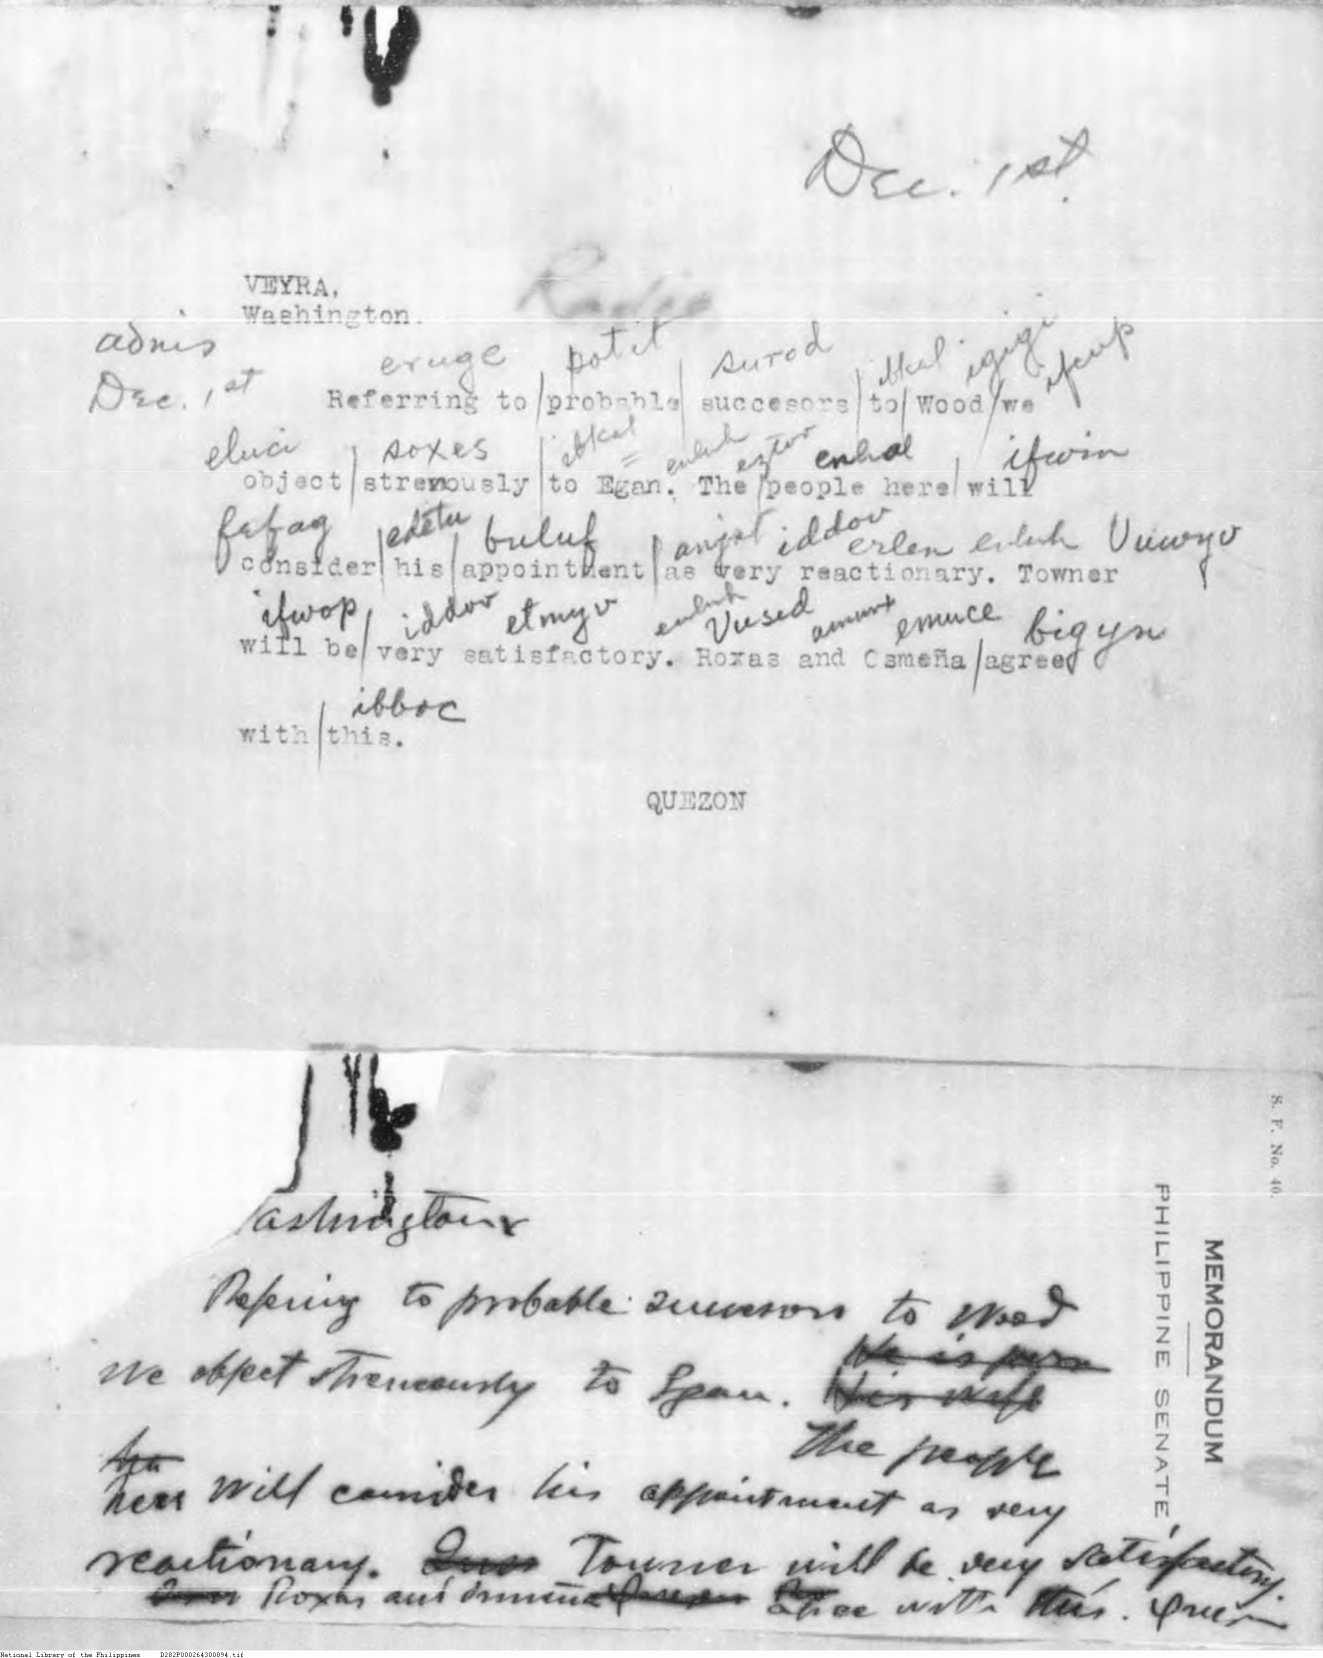 Dec. 1st.
VEYRA,
Radio
Washington.
adnis
eruge potit surod ibkal igigi ifcup
Dec. 1st
Referring to probable succesors to Wood we
eluci soxes ibkal enluh eztvo enhal ifwin
object stremously to Egan. The people here will
fafag buluf iddov erlen enluh
consider his appointment as very reactionary. Towner
ifwop iddov etmyv enluh Vused emuce bigyn
will be very satisfactory. Roxas and Osmeña agree
ibboc
with this.
QUEZON
S. F. No. 40.
MEMORANDUM
PHILIPPINE SENATE
ashington
Refering to probable succesors to Wood
We object strenuously to Egan. He is pers
His wife
The people
here will consider his appointment as very
reactionary. Towner will be very satisfactory.
Roxas and Osmeña agree with this. Quezon
National Library of the Philippines D282P000264300894.tif